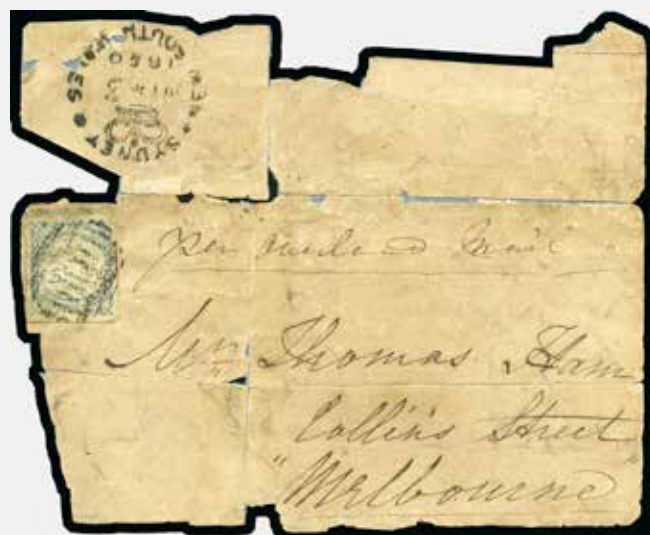 SYDNEY NEW SOUTH WALES
1850
per overland Mail
Mr Thomas Ham
Collins Street
"Melbourne"